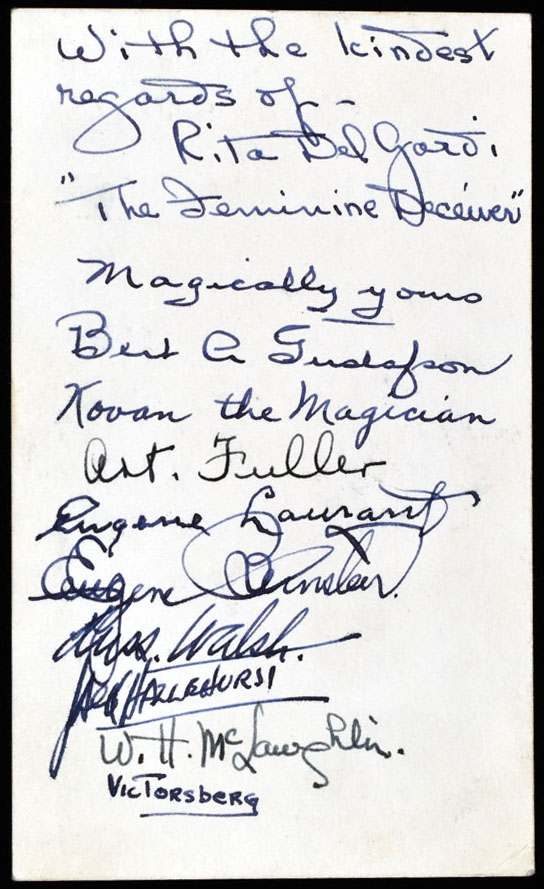 With the kindest
regards of -
Rita Del Gardi
"The Feminine Deceiver"
Magically yours
Bert A Gustafson
Kovan the Magician
Art. Fuller
Eugene Laurant
Eugene Bernstein.
Russ. Walsh.
W. H. McLaughlin.
VICTORSBERG